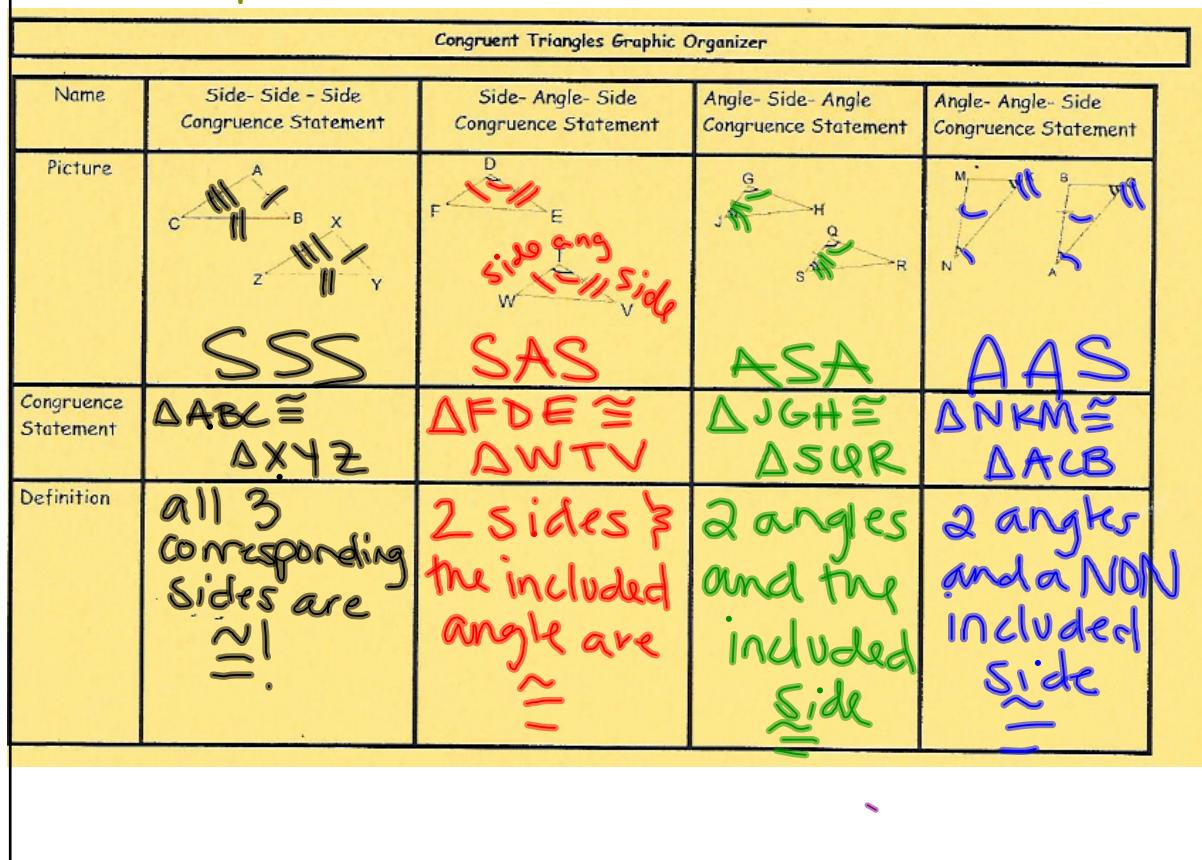 Congruent Triangles Graphic Organizer
Name
Side- Side - Side
Congruence Statement
Side- Angle- Side
Congruence Statement
Angle- Side- Angle
Congruence Statement
Angle- Angle- Side
Congruence Statement
Picture
A
C
B
X
Z
Y
SSS
D
F
E
side ang
side
W
V
SAS
G
J
H
Q
S
R
ASA
M
N
B
A
AAS
Congruence
Statement
△ABC≅
△XYZ
△FDE ≅
△WTV
△JGH≅
△SQR
△NKM≅
△ACB
Definition
all 3
corresponding
sides are
≅!
2 sides &
the included
angle are
≅
2 angles
and the
included
side
≅
2 angles
and a NON
included
side
≅